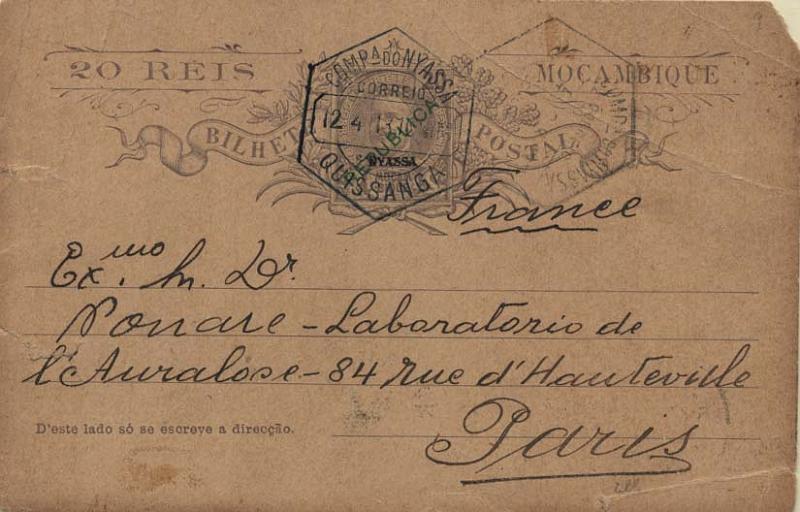 20 RÉIS
MOÇAMBIQUE
BILHETE POSTAL
COMPA DO NYASSA
CORREIO
12 4 13
REPUBLICA
NYASSA
QUISSANGA
France
Ex.mo Sr. Dr.
Ponare - Laboratorio de
l'Auralose - 84 rue d'Hauteville
Paris
D'este lado só se escreve a direcção.